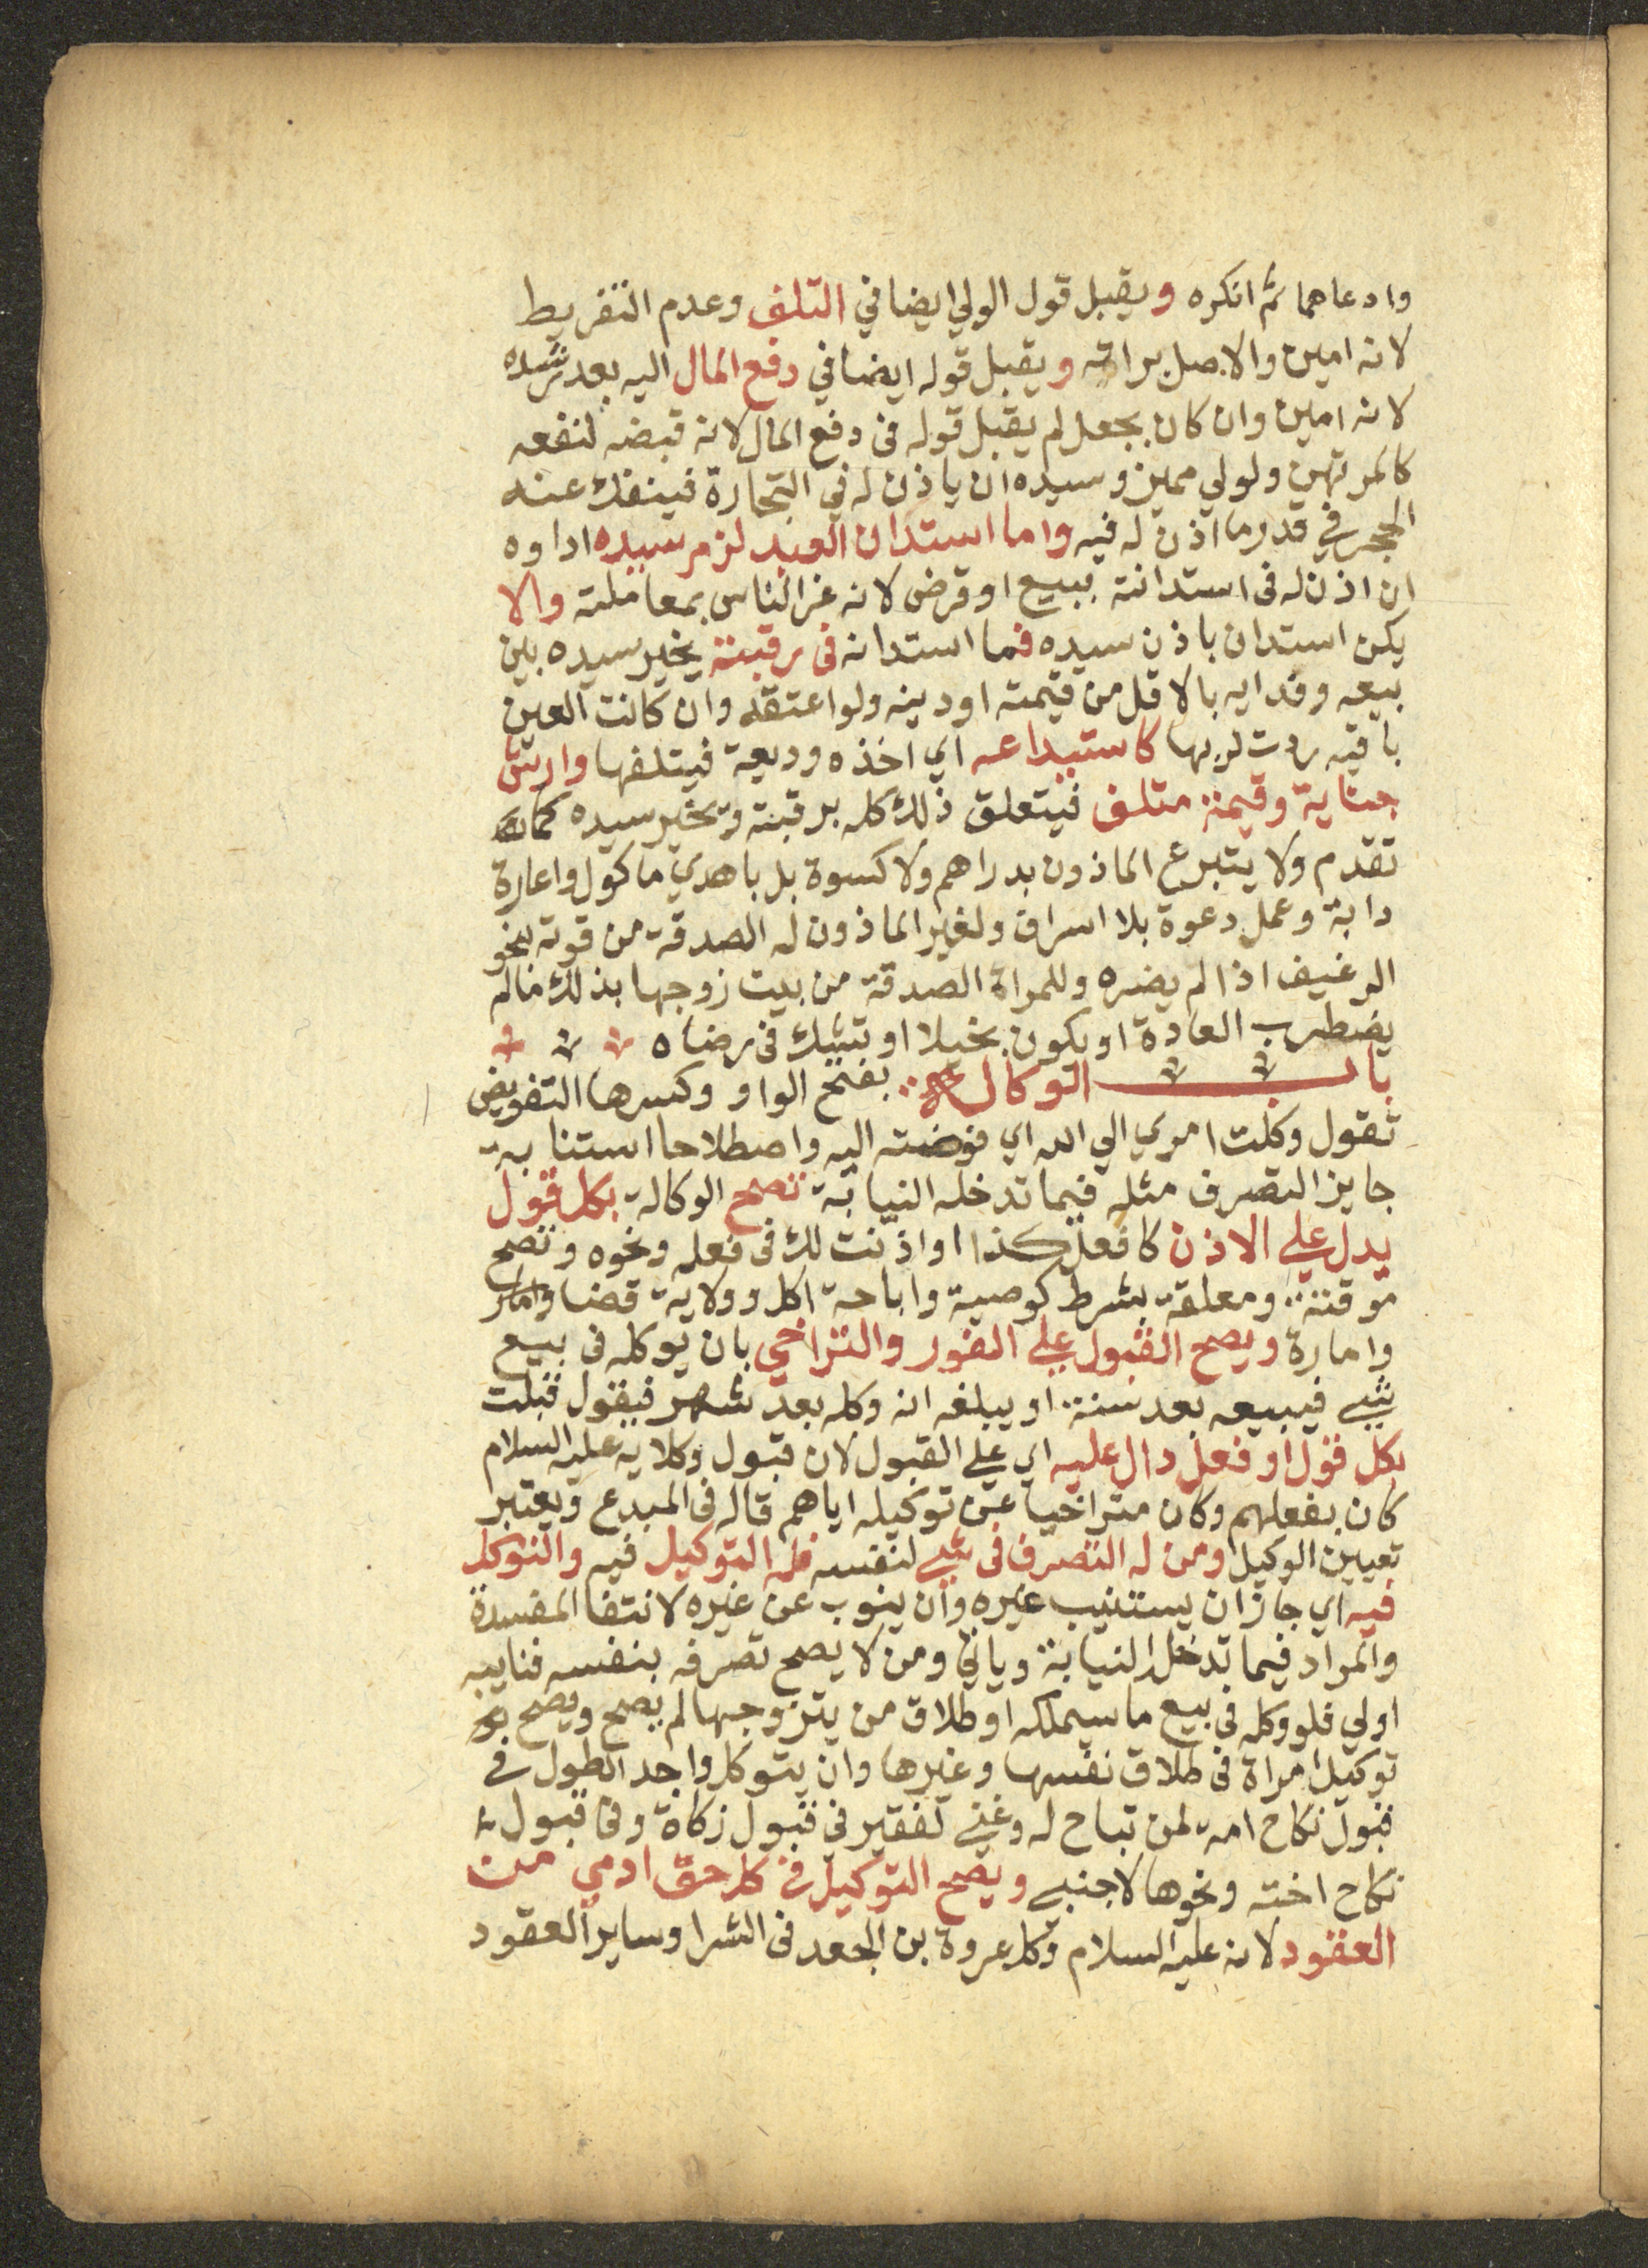 وادعاهما ثم انكره ويقبل قول الولي ايضا في التلف وعدم التفريط
لانه امين والاصل براته ويقبل قوله ايضا في دفع المال اليه بعد رشده
لانه امين وان كان بجعل لم يقبل قوله فى دفع المال لانه قبضه لنفعه
كالمرتهن ولولي مميز وسيده ان ياذن له في التجارة فينفك عنه
الحجر في قدر ما اذن له فيه وما استدان العبد لزم سيده اداوه
ان اذن له فى استدانته ببيع او قرض لانه غر الناس بمعاملته والا
يكن استدان باذن سيده فما استدانه فى رقبته يخير سيده بين
بيعه وفدايه بالاقل من قيمته او دينه ولو اعتقه وان كانت العين
باقيه ردت لربها كاستيداعه اي اخذه وديعة فيتلفها وارش
جناية وقيمة متلف فيتعلق ذلك كله برقبته ويخير سيده كما
تقدم ولا يتبرع الماذون بدراهم ولا كسوة بل باهدي ماكول واعارة
دابة وعمل دعوة بلا اسراف ولغير الماذون له الصدقة من قوته بنحو
الرغيف اذا لم يضره وللمراة الصدقة من بيت زوجها بذلك مالم
يضطرب العادة او يكون بخيلا او تشك فى رضاه
باب الوكالة بفتح الواو وكسرها التفويض
تقول وكلت امري الي الله اي فوضته اليه واصطلاحا استنابة
جايز التصرف مثله فيما تدخله النيابة تصح الوكالة بكل قول
يدل علي الاذن كافعل كذا او اذنت لك فى فعله ونحوه وتصح
موقتة ومعلقة بشرط كوصية واباحة اكل وولاية قضا
وامارة ويصح القبول علي الفور والتراخي بان يوكله فى بيع
شي فيبيعه بعد سنة او يبلغه انه وكله بعد شهر فيقول قبلت
بكل قول او فعل دال عليه اي علي القبول لان قبول وكلايه عليه السلام
كان بفعلهم وكان متراخيا عن توكيله اياهم قاله فى المبدع ويعتبر
تعيين الوكيل ومن له التصرف فى شي لنفسه فله التوكيل فيه والتوكل
فيه اي جاز ان يستنيب غيره وان ينوب عن غيره لانتفا المفسدة
والمراد فيما تدخله النيابة وياتي ومن لا يصح تصرفه بنفسه فنايبه
اولي فلو وكله فى بيع ما سيملكه او طلاق من يتزوجها لم يصح ويصح
توكيل امراة فى طلاق نفسها وغيرها وان يتوكل واجد الطول في
قبول نكاح امة لمن تباح له وغني لفقير في قبول زكاة وفى قبول
نكاح اخته ونحوها لاجنبي ويصح التوكيل في كل حق ادمي من
العقود لانه عليه السلام وكل عروة بن الجعد فى الشرا وساير العقود